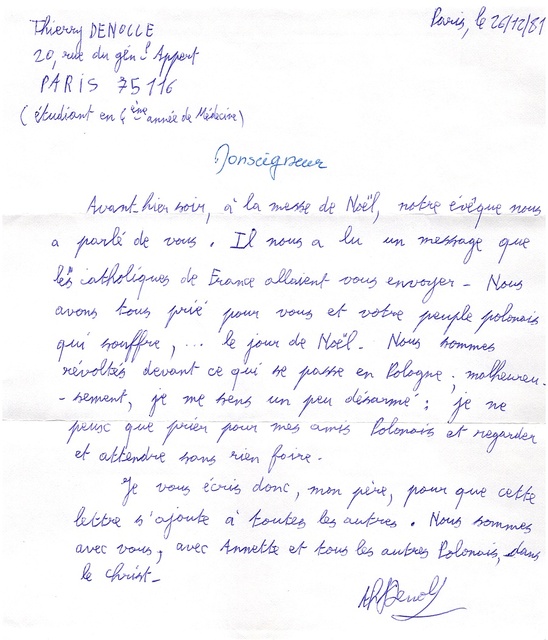 Thierry DENOLLE
Paris, le 26/12/81
20, rue du génᵉʳˡ Appert
PARIS 75116
(étudiant en 4ème année de Médecine)
Monseigneur
Avant-hier soir, à la messe de Noël, notre évêque nous
a parlé de vous. Il nous a lu un message que
les catholiques de France allaient vous envoyer - Nous
avons tous prié pour vous et votre peuple polonais
qui souffre, ... le jour de Noël. Nous sommes
révoltés devant ce qui se passe en Pologne ; malheureu-
-sement, je me sens un peu désarmé : je ne
peux que prier pour mes amis Polonais et regarder
et attendre sans rien faire.
Je vous écris donc, mon père, pour que cette
lettre s'ajoute à toutes les autres. Nous sommes
avec vous, avec Annette et tous les autres Polonais, dans
le Christ-